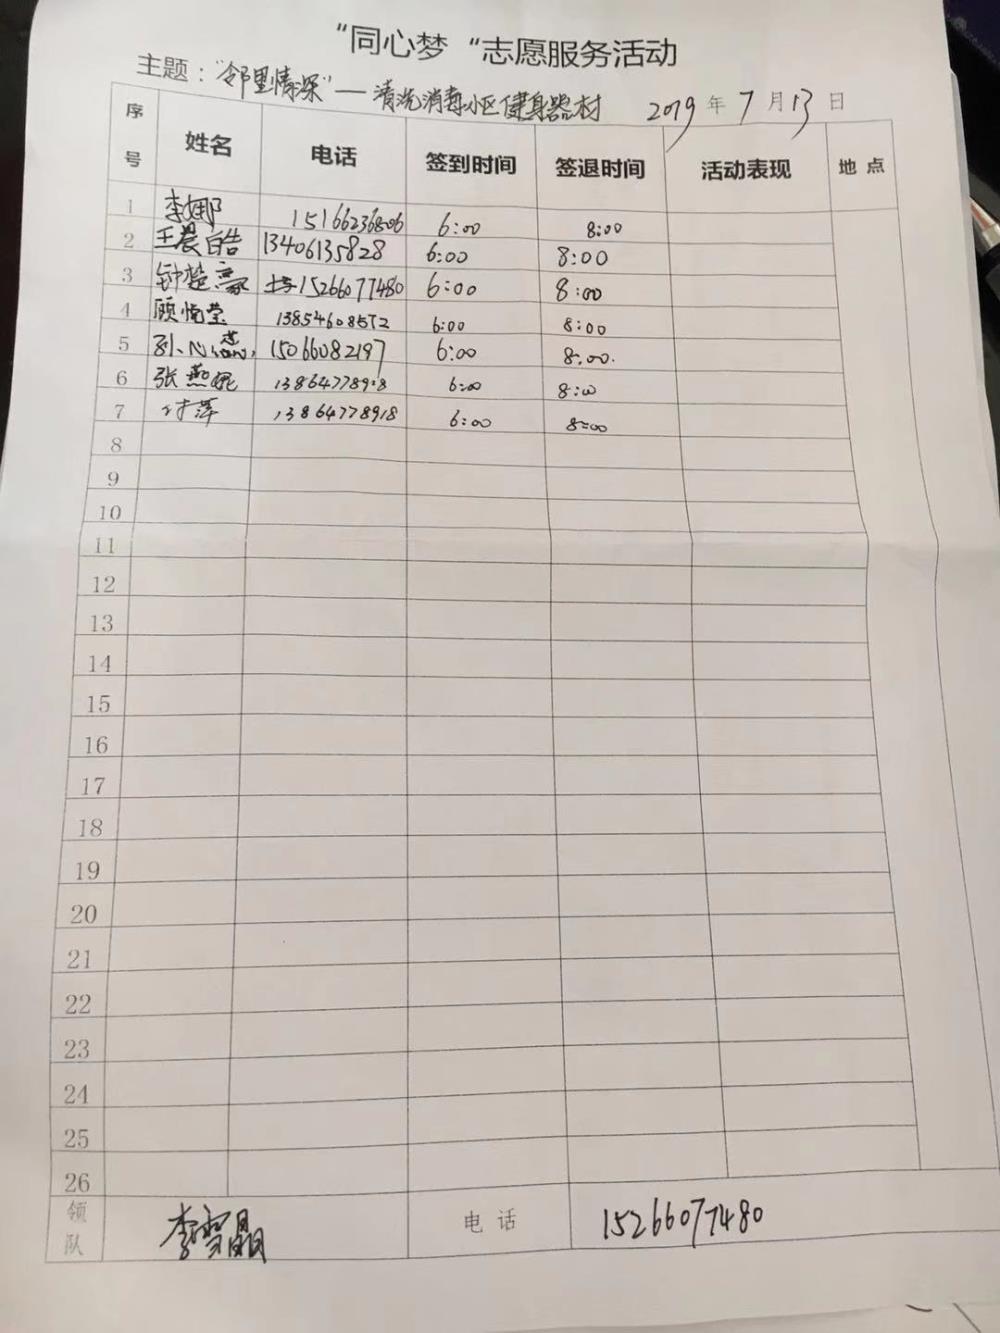 “同心梦“志愿服务活动
主题：“邻里情深”—清洗消毒小区健身器材 2019年7月13日
序号 姓名 电话 签到时间 签退时间 活动表现 地点
1 李娜 15166236806 6:00 8:00
2 王晨皓 13406135828 6:00 8:00
3 钟楚豪 15266077480 6:00 8:00
4 顾悦莹 13854608572 6:00 8:00
5 孙心蕊 15066082197 6:00 8:00.
6 张燕妮 13864778918 6:00 8:00
7 付萍 13864778918 6:00 8:00
8
9
10
11
12
13
14
15
16
17
18
19
20
21
22
23
24
25
26
领队 李雪晶 电话 15266077480